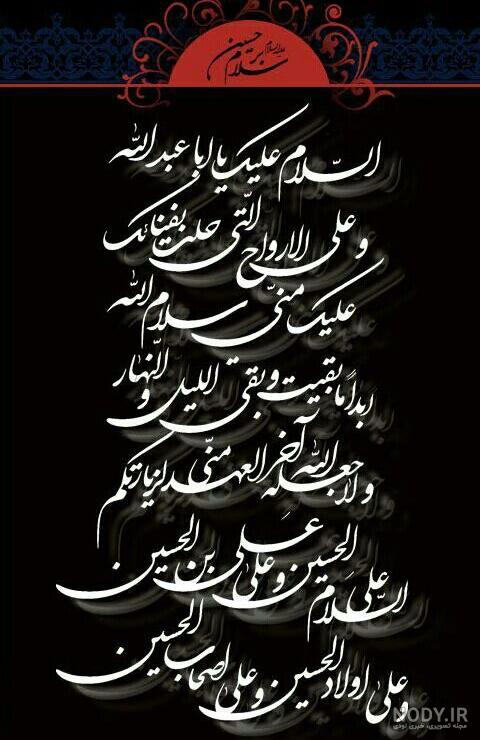 سلام بر حسین علیه السلام
السّلام علیک یا ابا عبدالله
و علی الارواح الّتی حلت بفنائک
علیک منّی سلام الله
ابداً ما بقیت و بقی اللیل و النّهار
و لا جعله الله آخر العهد منّی لزیارتکم
السلام علَی الحسین و علی علَی بن الحسین
و علی اولاد الحسین و علی اصحاب الحسین
NODY.IR
مجله تصویری، خبری نودی